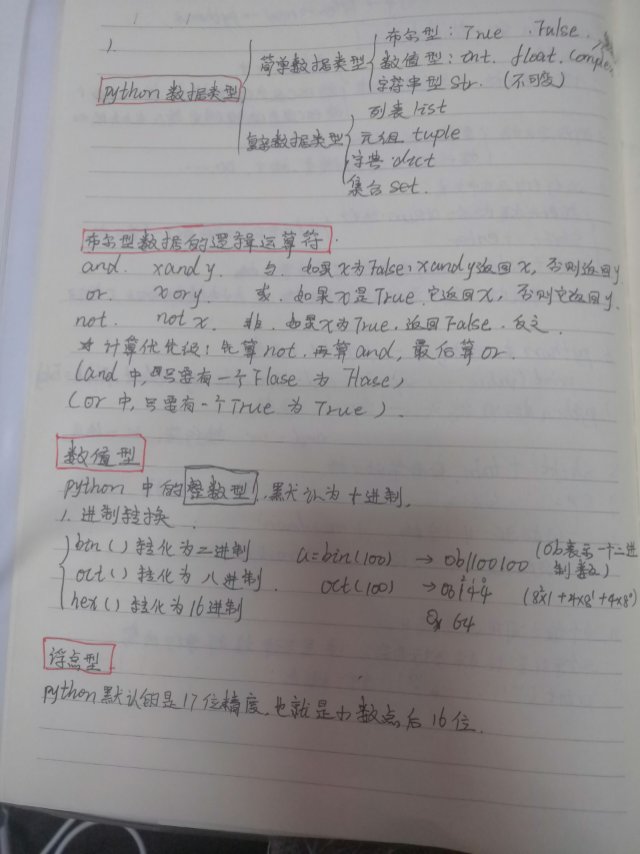 1.
布尔型: True . False.
简单数据类型 数值型: int. float. Complex
python 数据类型 字符串型 str. (不可变)
列表 list
复杂数据类型 元组 tuple
字典 dict
集合 set.
布尔型数据的逻辑运算符.
and. x and y. 与. 如果x为False, x and y返回x, 否则返回y
or. x or y. 或. 如果x是True. 它返回x, 否则它返回y.
not. not x. 非. 如果x为True, 返回False. 反之.
* 计算优先级: 先算not, 再算and, 最后算or.
(and 中, 只要有一个Flase 为 Flase)
(or 中, 只要有一个True 为 True).
数值型
python 中的整数型, 默认为十进制.
1. 进制转换.
bin() 转化为二进制 a=bin(100) → 0b1100100 (0b表示一个二进制数)
oct() 转化为 八进制. oct(100) → 0b144 (8²x1+4x8¹+4x8⁰)
hex() 转化为16进制 0x 64
浮点型
python默认的是17位精度, 也就是小数点后16位.